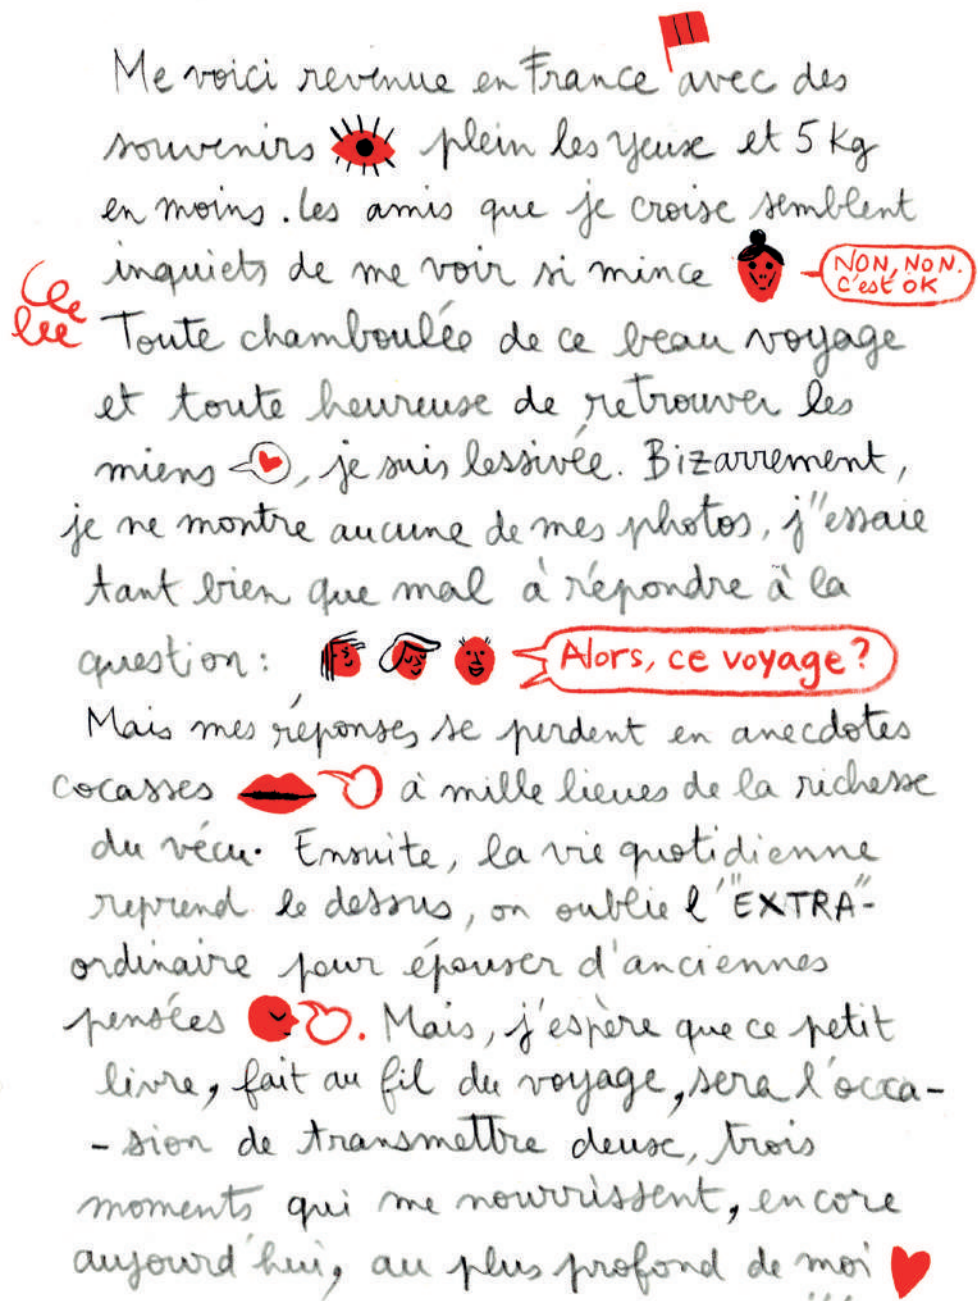 Me voici revenue en France avec des
souvenirs plein les yeux et 5 kg
en moins. Les amis que je croise semblent
inquiets de me voir si mince
NON, NON.
C'est OK
Toute chamboulée de ce beau voyage
et toute heureuse de retrouver les
miens, je suis lessivée. Bizarrement,
je ne montre aucune de mes photos, j'essaie
tant bien que mal à répondre à la
question:
Alors, ce voyage?
Mais mes réponses se perdent en anecdotes
cocasses à mille lieues de la richesse
du vécu. Ensuite, la vie quotidienne
reprend le dessus, on oublie l'"EXTRA"-
ordinaire pour épouser d'anciennes
pensées. Mais, j'espère que ce petit
livre, fait au fil du voyage, sera l'occa-
-sion de transmettre deux, trois
moments qui me nourrissent, encore
aujourd'hui, au plus profond de moi